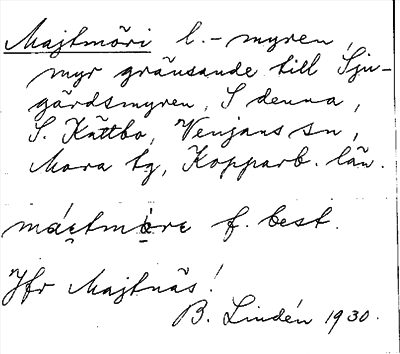 Majtmöri l. - myren,
myr gränsande till Sju-
gårdsmyren, S denna,
S. Kättbo, Venjans sn,
Mora tg, Kopparb. län.
f. best.
Jfr Majtnäs!
B. Lindén 1930.